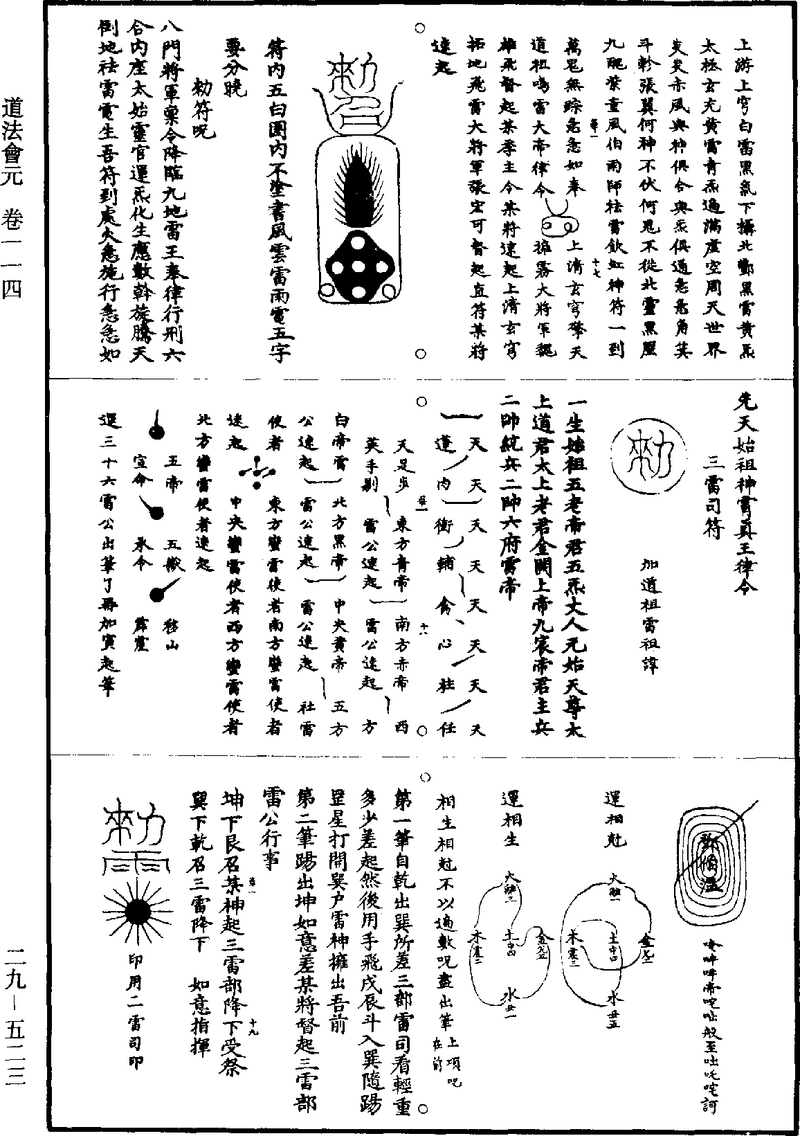 道法會元 卷一一四
二九－五二三
上游上穹白雷黑氣下攝北酆黑雷黃炁
太極玄充黃雷青炁遍滿虛空周天世界
炎炎赤風與神俱合與炁俱通急急角箕
斗軫張翼何神不伏何鬼不從北靈黑風
九醜紫童風伯雨師祛雷飲虹神符一到
萬鬼無踪急急如奉 上清玄穹擎天
道祖鳴雷大帝律令 掀雷大將軍
雄飛督起某季主令某將速起上清玄穹
拓地飛雷大將軍張宏可督起直符某將
速起
符內五白圈內不塗書風雲雷雨電五字
要分曉
勑符呪
八門將軍稟令降臨九地雷王奉律行刑六
合內座太始靈官運炁化生應數斡旋騰天
倒地祛雷電生吾符到處火急施行急急如
先天始祖神霄真王律令
三雷司符
勑
加道祖雷祖諱
一生始祖五老帝君五炁大人元始天尊太
上道君太上老君金闕上帝九宸帝君主兵
二帥統兵二帥六府雷帝
天 天 天 天 天 天 天 天
蓬 內 衝 輔 禽 心 柱 任
天足步 東方青帝 南方赤帝 西
英手剔 雷公速起 雷公速起 方
白帝雷 北方黑帝 中央黃帝 五方
公速起 雷公速起 雷公速起 社雷
使者 東方蠻雷使者南方蠻雷使者
速起 中央蠻雷使者西方蠻雷使者
北方蠻雷使者速起
五帝 五嶽 移山
宣命 承令 霹靂
運三十六雷公出筆了再加寅起筆
運相尅
火 金 土 木 水
運相生
火 金 土 木 水
相生相尅不以遍數呪盡出筆 上項呪在前
第一筆自乾出巽所差三部雷司看輕重
多少差起然後用手飛戌辰斗入巽隨踢
罡星打開巽戶雷神擁出吾前
第二筆踢出坤如意差某將督起三雷部
雷公行事
坤下艮召某神起三雷部降下受祭
巽下乾召三雷降下 如意指揮
勑
印用二雷司印